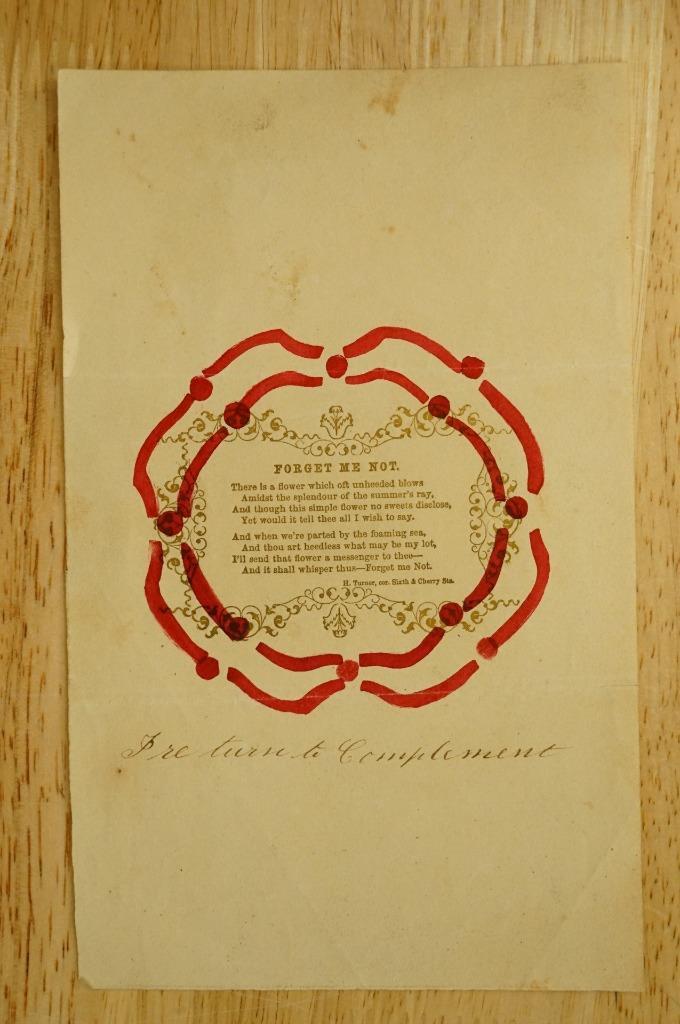 FORGET ME NOT.
There is a flower which oft unheeded blows
Amidst the splendour of the summer's ray,
And though this simple flower no sweets disclose,
Yet would it tell thee all I wish to say.
And when we're parted by the foaming sea,
And thou art heedless what may be my lot,
I'll send that flower a messenger to thee—
And it shall whisper thus—Forget me Not.
H. Turner, cor. Sixth & Cherry Sts.
I re turn te Complement